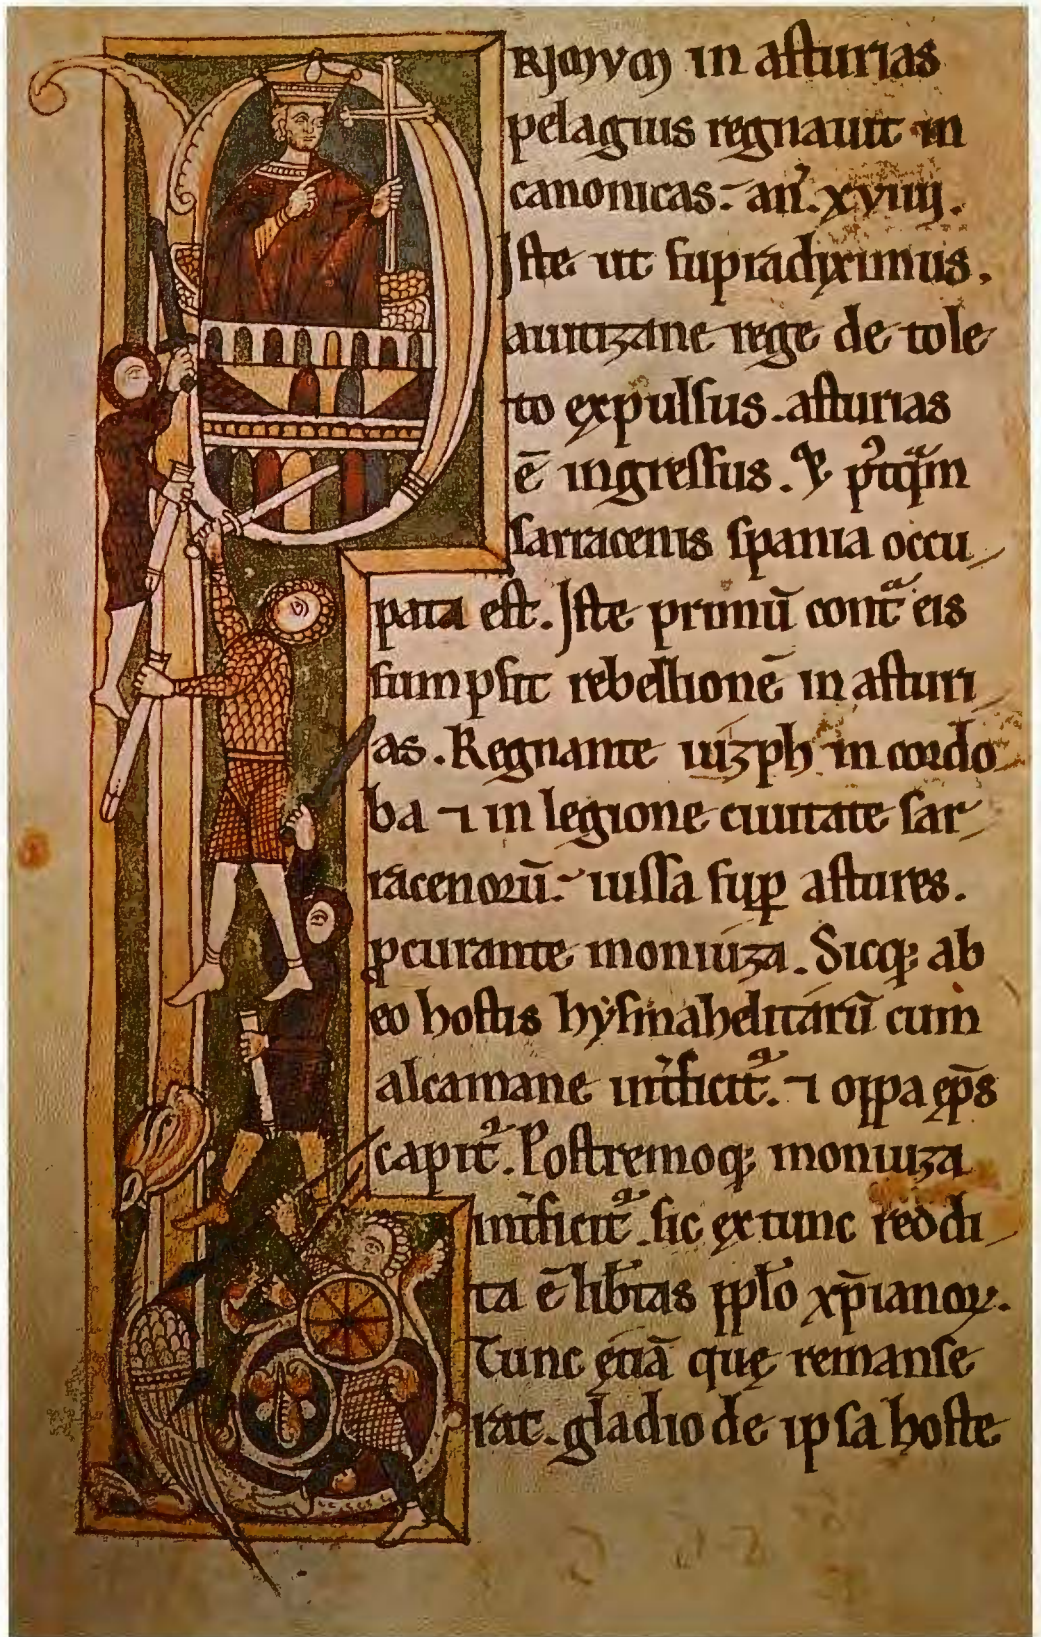 PRIMUM in asturias
pelagius regnauit in
canonicas. an̄. xviiii.
Iste ut supradiximus.
auuitizane rege de tole
to expulsus. asturias
ē ingressus. & p̾tqͣm
sarracenis spania occu
pata est. Iste primū contͣ eis
sumpsit rebellionē in asturi
as. Regnante iuzph in cordo
ba ⁊ in legione ciuitate sar
racenorū. iussa sup̱ astures.
ꝓcurante monuza. Sicq; ab
eo hostis hysmahelitarū cum
alcamane int̾ficit᷑. ⁊ oppa ep̄s
capit᷑. Postremoq; monuiza
int̾ficit᷑. sic ex tunc reddi
ta ē lib̄tas ppl̄o xp̄ianoꝝ.
Tunc etiā quę remanse
rat. gladio de ipsa hoste